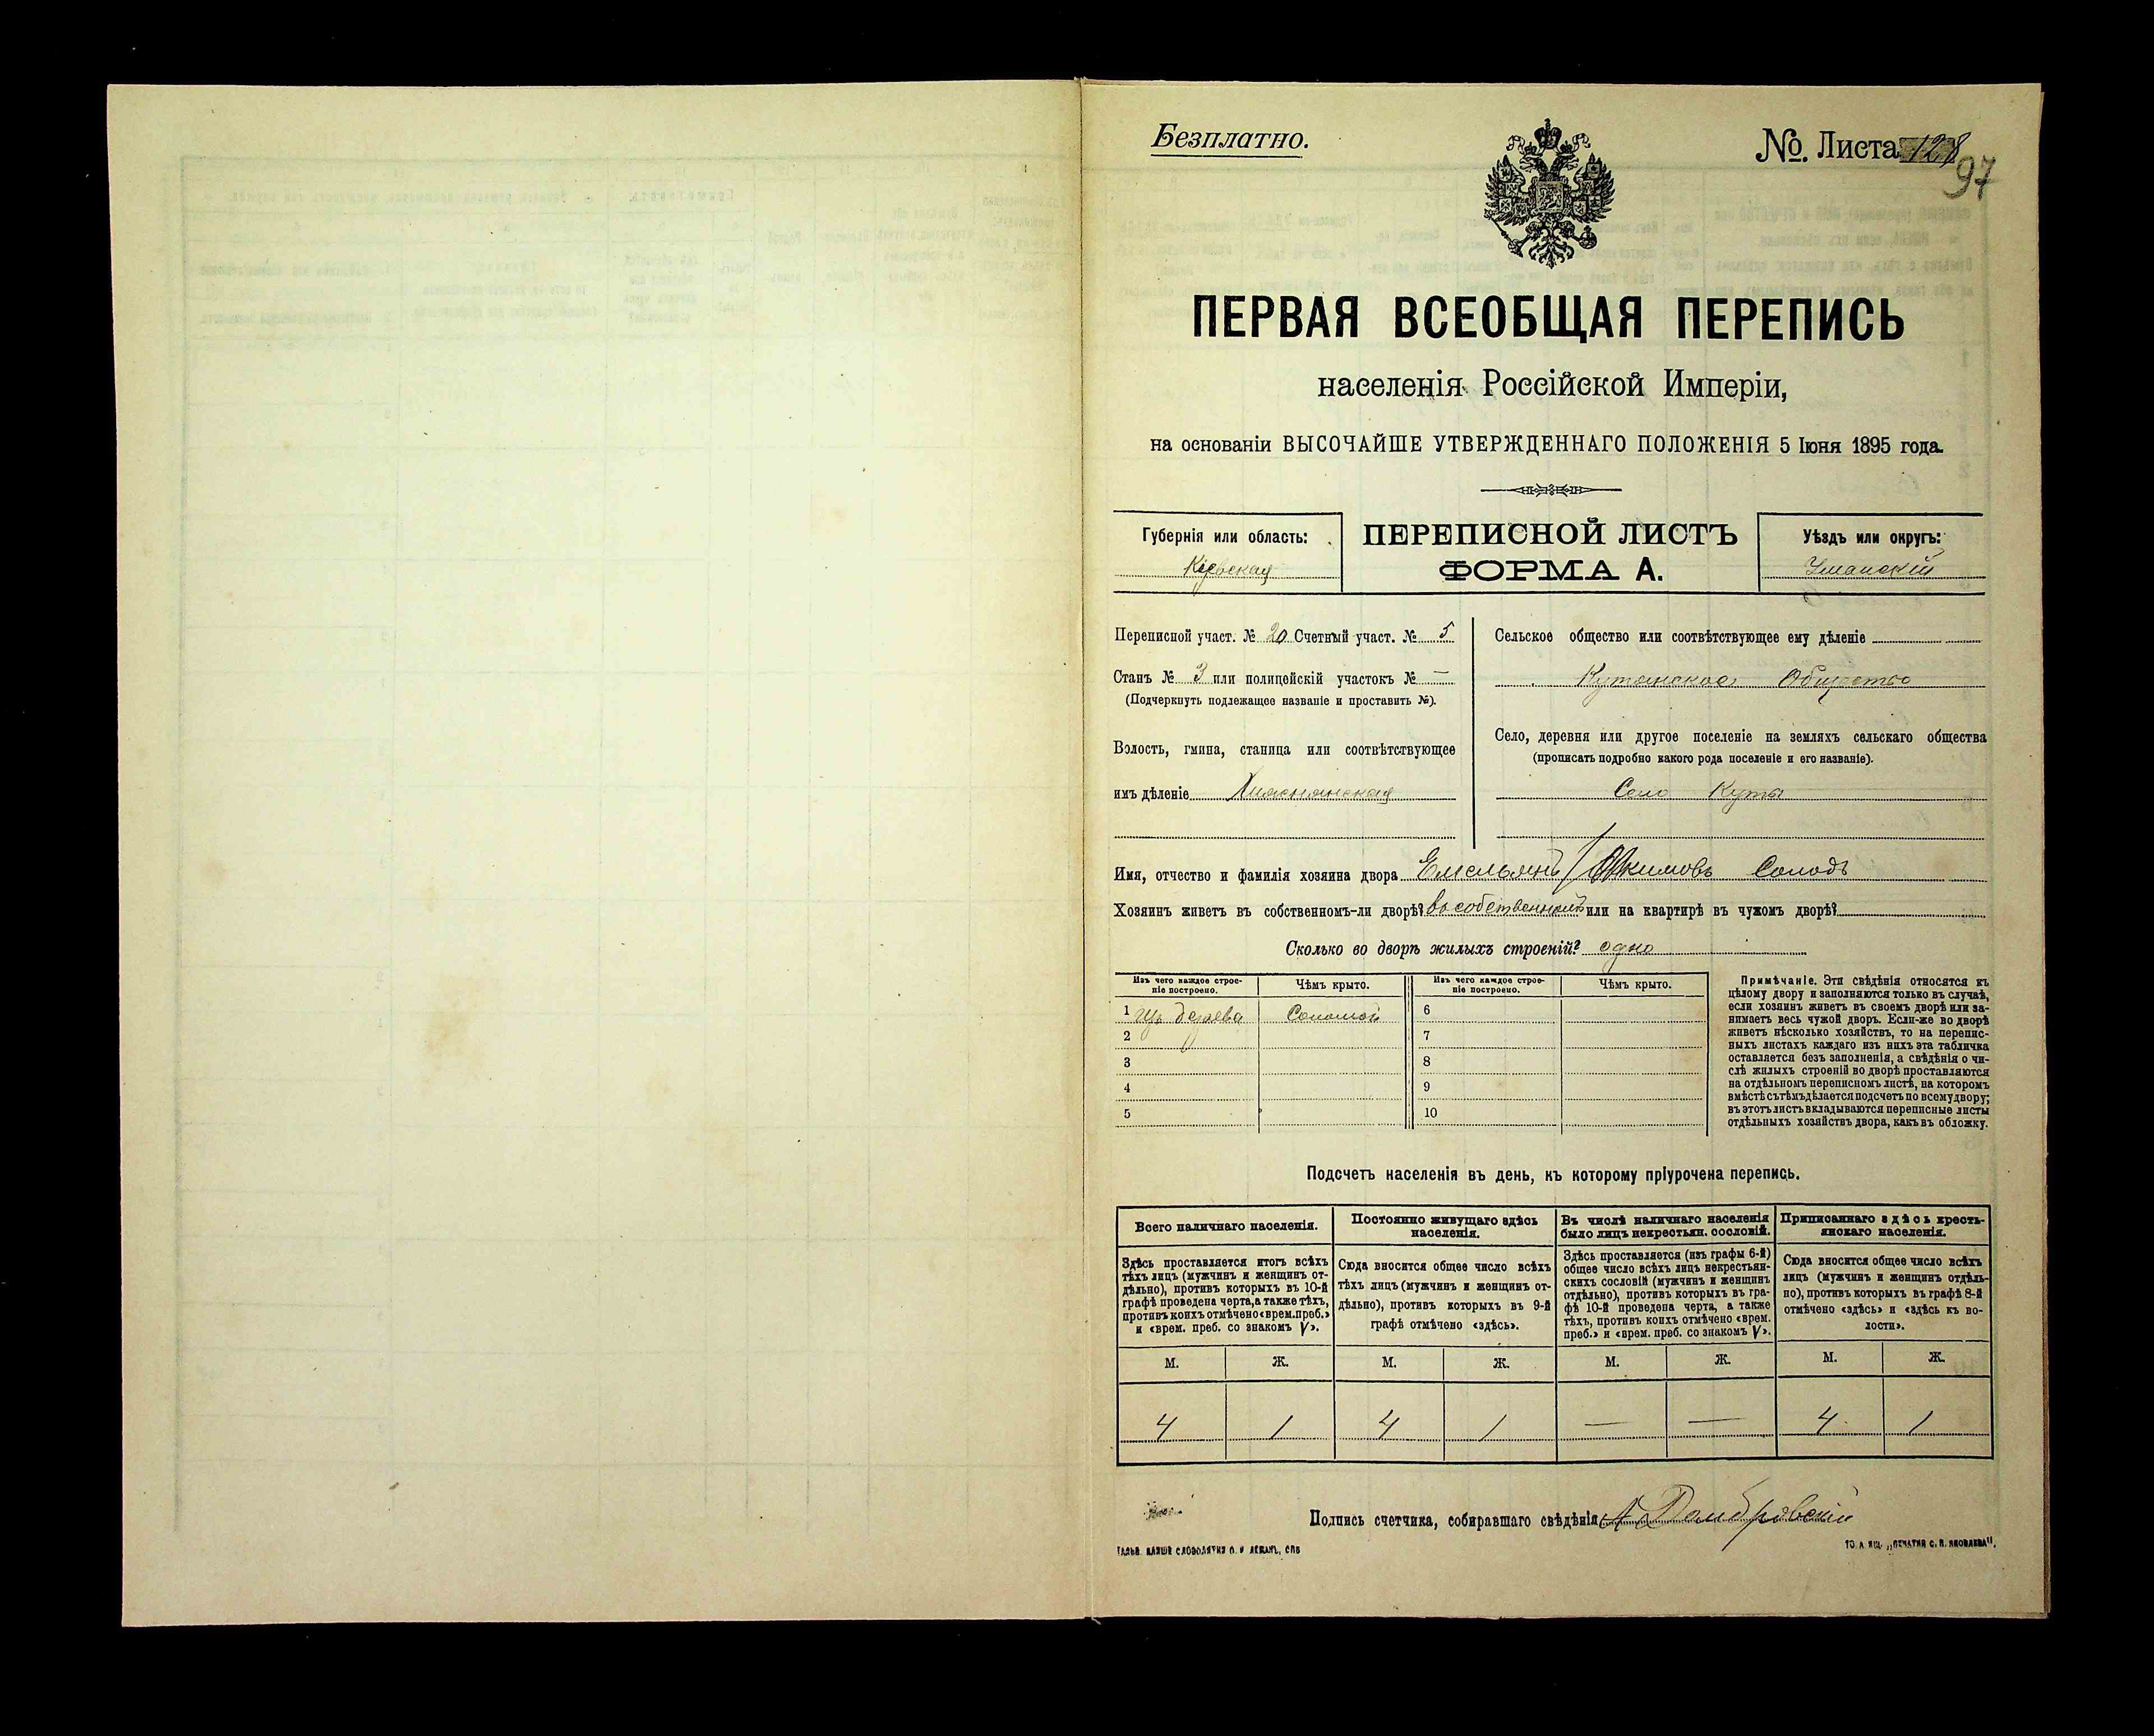 Безплатно.
№. Листа 128
97
ПЕРВАЯ ВСЕОБЩАЯ ПЕРЕПИСЬ
населенія Россійской Имперіи,
на основаніи ВЫСОЧАЙШЕ УТВЕРЖДЕННАГО ПОЛОЖЕНІЯ 5 Іюня 1895 года.
Губернія или область:
Кіевская
ПЕРЕПИСНОЙ ЛИСТЪ
ФОРМА А.
Уѣздъ или округъ:
Уманскій
Переписной участ. № 20 Счетный участ. № 5
Станъ № 3 или полицейскій участокъ № —
(Подчеркнуть подлежащее названіе и проставить №).
Волость, гмина, станица или соотвѣтствующее
имъ дѣленіе
Сельское общество или соотвѣтствующее ему дѣленіе
Кутянское Общество
Село, деревня или другое поселеніе на земляхъ сельскаго общества
(прописать подробно какого рода поселеніе и его названіе).
Село Куты
Имя, отчество и фамилія хозяина двора Емельянъ Якимовъ Солодъ
Хозяинъ живетъ въ собственномъ-ли дворѣ? въ собственномъ или на квартирѣ въ чужомъ дворѣ?
Сколько во дворѣ жилыхъ строеній? одно
Изъ чего каждое строе-
ніе построено.
Чѣмъ крыто.
Изъ чего каждое строе-
ніе построено.
Чѣмъ крыто.
1 Изъ дерева Соломой 6
2 7
3 8
4 9
5 10
Примѣчаніе. Эти свѣдѣнія относятся къ
цѣлому двору и заполняются только въ случаѣ,
если хозяинъ живетъ въ своемъ дворѣ или за-
нимаетъ весь чужой дворъ. Если-же во дворѣ
живетъ нѣсколько хозяйствъ, то на перепис-
ныхъ листахъ каждаго изъ нихъ эта табличка
оставляется безъ заполненія, а свѣдѣнія о чи-
слѣ жилыхъ строеній во дворѣ проставляются
на отдѣльномъ переписномъ листѣ, на которомъ
вмѣстѣ съ тѣмъ дѣлается подсчетъ по всему двору;
въ этотъ листъ вкладываются переписные листы
отдѣльныхъ хозяйствъ двора, какъ въ обложку.
Подсчетъ населенія въ день, къ которому пріурочена перепись.
Всего наличнаго населенія.
Здѣсь проставляется итогъ всѣхъ
тѣхъ лицъ (мужчинъ и женщинъ от-
дѣльно), противъ которыхъ въ 10-й
графѣ проведена черта, а также тѣхъ,
противъ коихъ отмѣчено «врем. преб.»
и «врем. преб. со знакомъ V».
Постоянно живущаго здѣсь
населенія.
Сюда вносится общее число всѣхъ
тѣхъ лицъ (мужчинъ и женщинъ от-
дѣльно), противъ которыхъ въ 9-й
графѣ отмѣчено «здѣсь».
Въ числѣ наличнаго населенія
было лицъ некрестьян. сословій.
Здѣсь проставляется (изъ графы 6-й)
общее число всѣхъ лицъ некрестьян-
скихъ сословій (мужчинъ и женщинъ
отдѣльно), противъ которыхъ въ гра-
фѣ 10-й проведена черта, а также
тѣхъ, противъ коихъ отмѣчено «врем.
преб.» и «врем. преб. со знакомъ V».
Приписаннаго здѣсь кресть-
янскаго населенія.
Сюда вносится общее число всѣхъ
лицъ (мужчинъ и женщинъ отдѣль-
но), противъ которыхъ въ графѣ 8-й
отмѣчено «здѣсь» и «здѣсь къ во-
лости».
М. Ж. М. Ж. М. Ж. М. Ж.
4 1 4 1 — — 4 1
Подпись счетчика, собиравшаго свѣдѣнія А Домбровскій